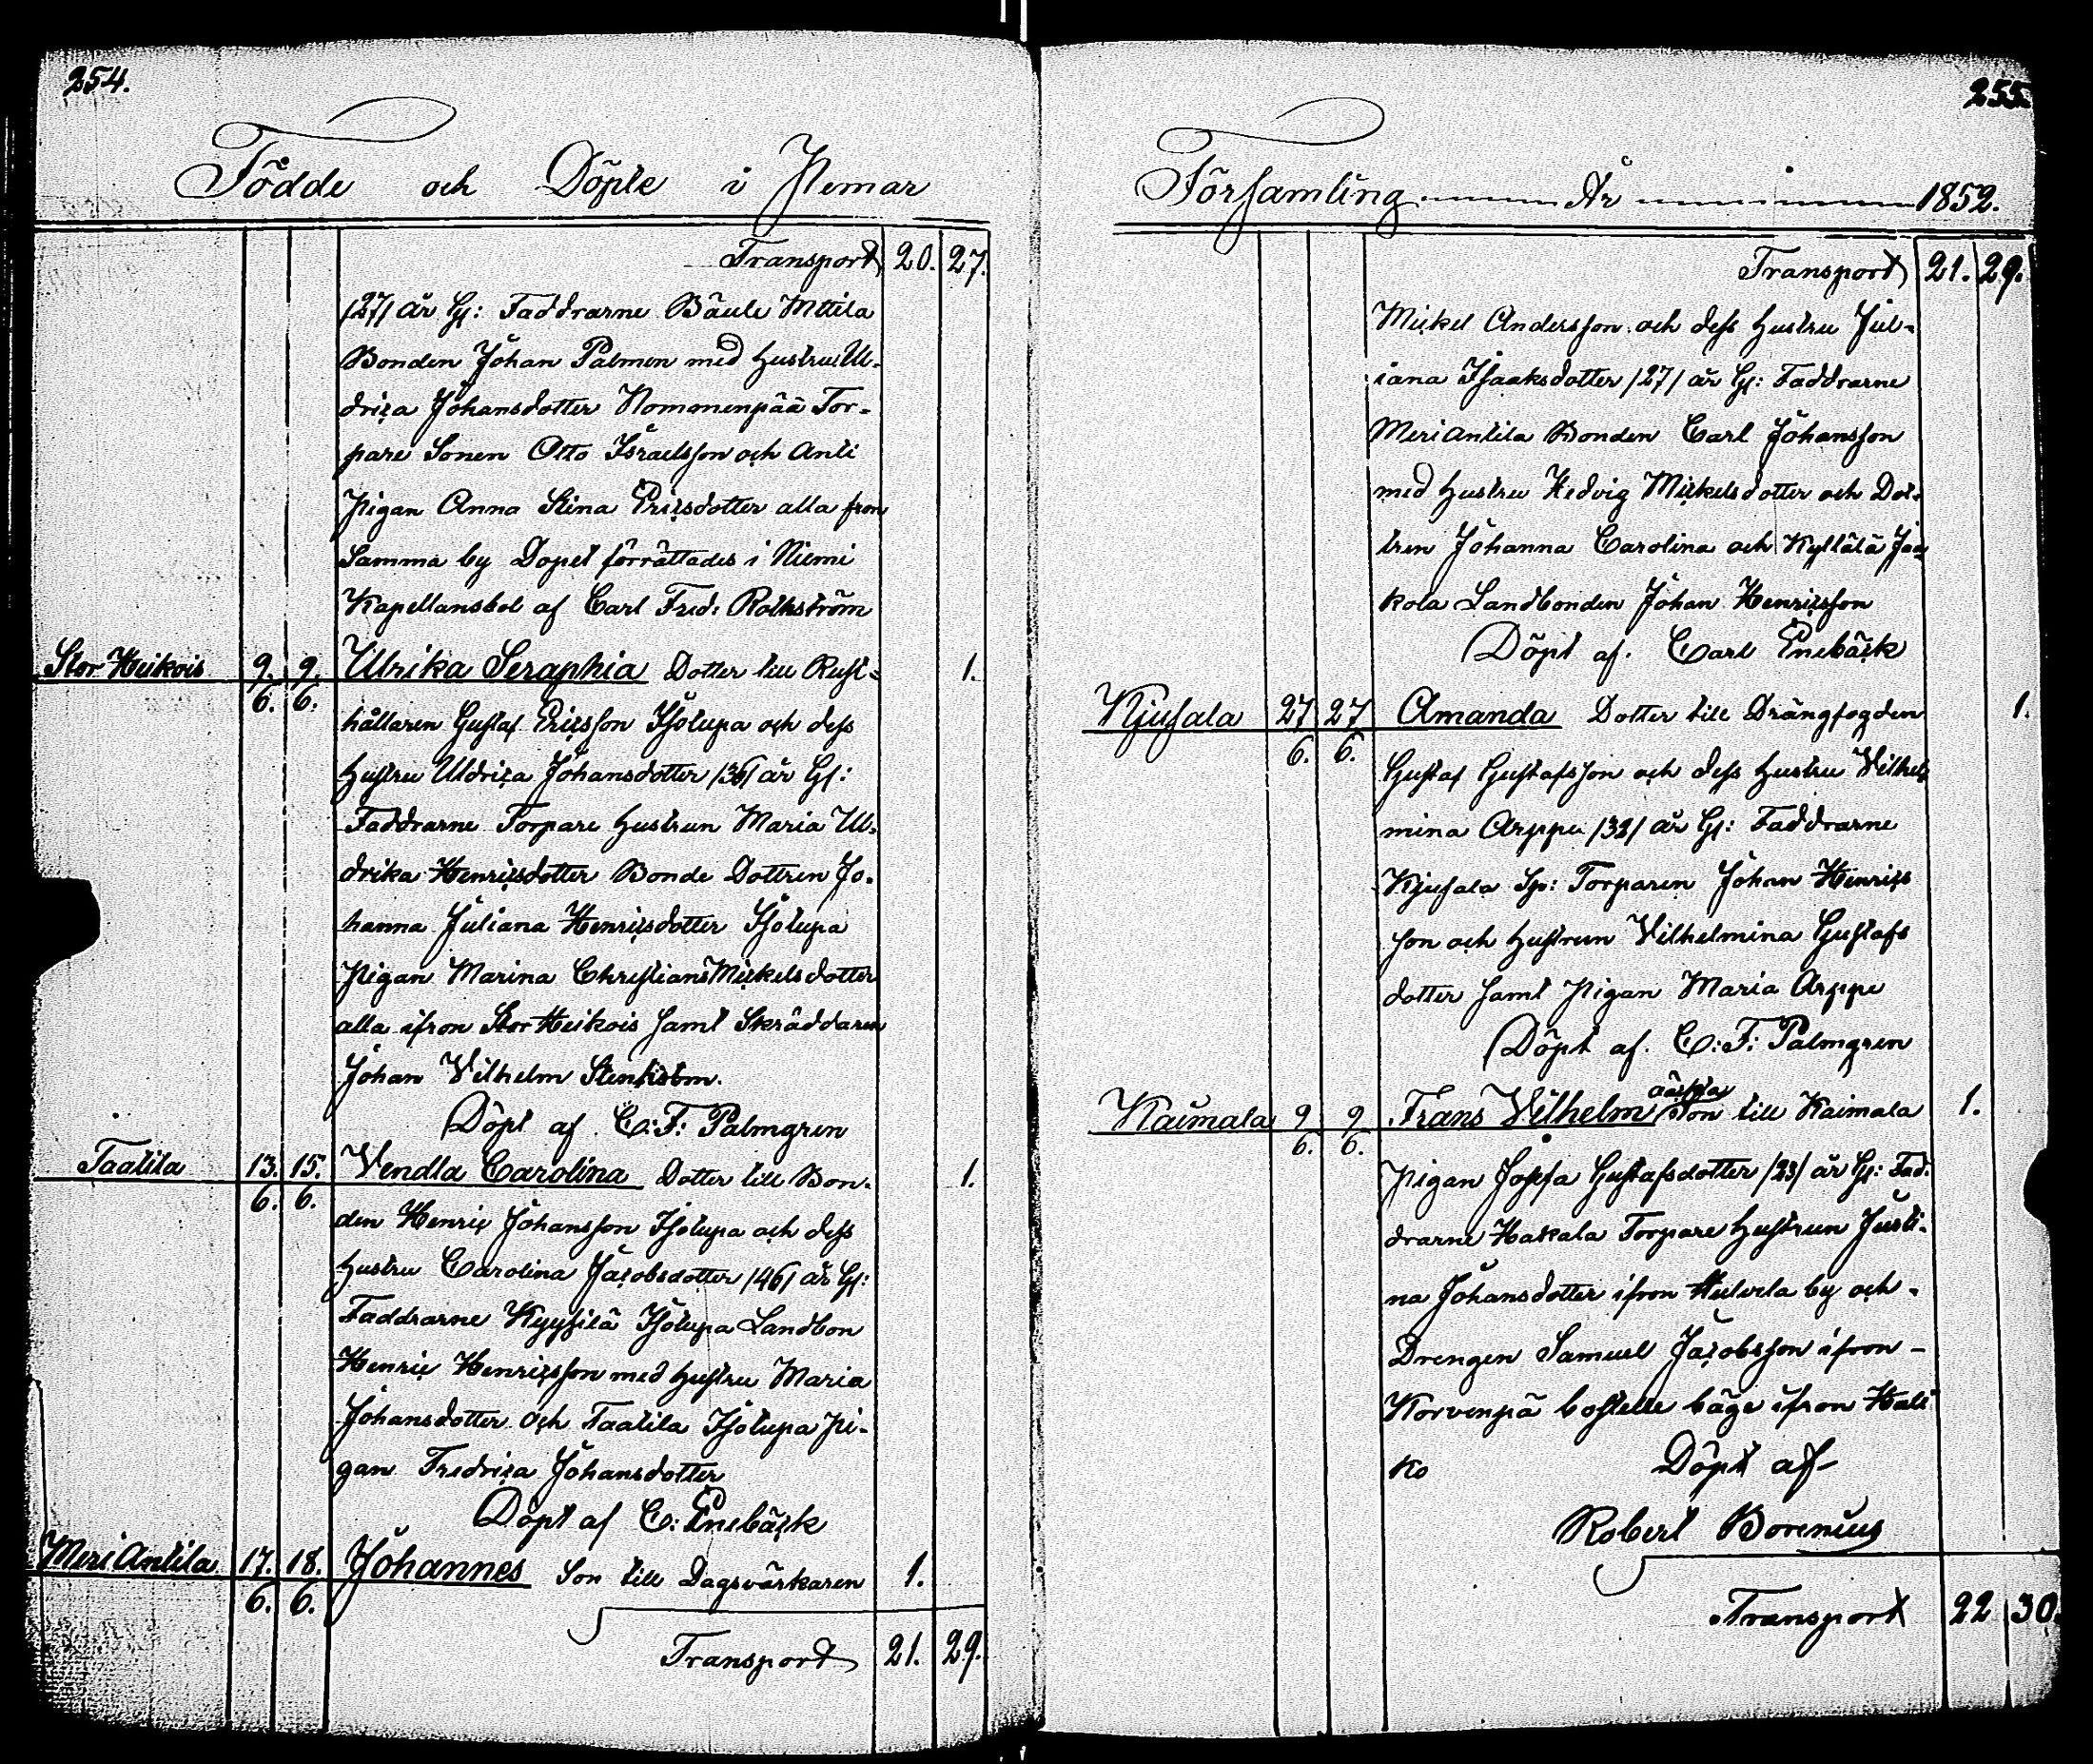 254.
Födde och Döpte i Pemar
Transport 20. 27.
/27/ år Gl: Faddrarne Bäule Mttila
Bonden Johan Palmen med hustru Ul-
drica Johansdotter Nomonenpää Tor-
pare Sonen Otto Israelsson och Anti
Pigan Anna Stina Ericsdotter alla fron
Samma by Dopet förrättades i Niemi
Kapellansbol af Carl Fred: Rothström
Stor Heikois 9. 9. Ulrika Seraphia Dotter till Rust- 1.
6. 6. hållaren Gustaf Ericsson Isotupa och dess
hustru Uldrica Johansdotter /36/ år Gl:
Faddrarne Torpare hustrun Maria Ul-
drika Henricsdotter Bonde Dottren Jo-
hanna Juliana Henricsdotter Isotupa
Pigan Marina Christians Mickelsdotter
alla ifron Stor Heikois samt Skräddaren
Johan Vilhelm Stenholm.
Döpt af C:F: Palmgren
Taatila 13. 15. Vendla Carolina Dotter till Bon- 1.
6. 6. den Henric Johansson Isotupa och dess
hustru Carolina Jacobsdotter /46/ år Gl:
Faddrarne Kyysilä Isotupa Landbon
Henric Henricsson med hustru Maria
Johansdotter och Taatila Isotupa Pi-
gan Fredrica Johansdotter
Döpt af C: Enebäck
Meri Antila 17. 18. Johannes Son till Dagsvärkaren 1.
6. 6.
Transport 21. 29.
255.
Församling År 1852.
Transport 21. 29.
Mickel Andersson och dess hustru Jul-
iana Isaaksdotter /27/ år Gl: Faddrarne
Meri Antila Bonden Carl Johansson
med hustru Hedvig Mickelsdotter och Dot-
tren Johanna Carolina och Kyllälä Jaa
kola Landbonden Johan Henricsson
Döpt af. Carl Enebäck
Kjusala 27 27 Amanda Dotter till Drängfogden 1.
6. 6. Gustaf Gustafsson och dess hustru Vilhel
mina Arppe /32/ år Gl: Faddrarne
Kjusala Sp: Torparen Johan Henrics
son och hustrun Vilhelmina Gustafs
dotter samt Pigan Maria Arppe
Döpt af. C:F: Palmgren
oäkta
Kaimala 9 9 Frans Vilhelm Son till Kaimala 1.
6. 6. Pigan Josefa Gustafsdotter /23/ år Gl: Fad-
drarne Hakala Torpare hustrun Justi-
na Johansdotter ifron by och
Drengen Samuel Jacobsson ifron
Korvenpä bostelle bäge ifron Hali
ko Döpt af
Robert Borenius
Transport 22 30.